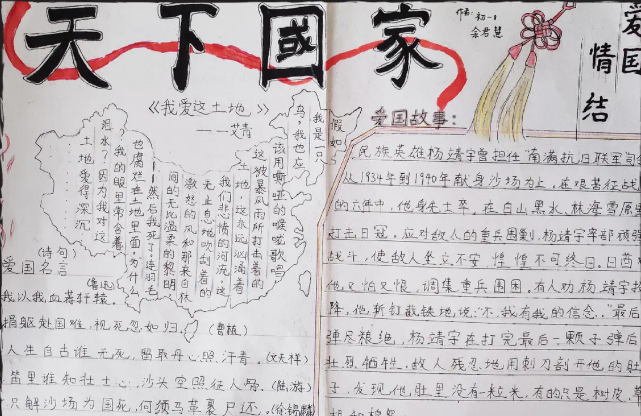 天下國家
作者:初一1
余君慧
爱国
情结
《我爱这土地》
——艾青
假如
我是一只
鸟,我也应
该用嘶哑的喉咙歌唱
这被暴风雨所打击着的
土地,这永远汹涌着
我们悲愤的河流,这
无止息地吹刮着的
激怒的风和那来自林
间的无比温柔的黎明
——然后我死了,连羽毛
也腐烂在土地里面。为什么
我的眼里常含着
泪水?因为我对这
土地爱得深沉......
(诗句)
爱国名言
我以我血荐轩辕 (鲁迅)
捐躯赴国难,视死忽如归。(曹植)
人生自古谁无死,留取丹心照汗青。(文天祥)
笛里谁知壮士心,沙头空照征人骨。(陆游)
只解沙场为国死,何须马革裹尸还。(徐锡麟)
爱国故事:
民族英雄杨靖宇曾担任南满抗日联军司
从1934年到1940年献身沙场为上,在艰苦征战
的六年中,他身先士卒,在白山黑水、林海雪原
打击日寇,应对敌人的重兵围剿,杨靖宇率部顽强
战斗,使敌人坐立不安,惶惶不可终日。日酋
他又怕又恨,调集重兵围困,有人劝杨靖宇投
降,他斩钉截铁地说:"不,我有我的信念。"最后
弹尽粮绝,杨靖宇在打完最后一颗子弹后
壮烈牺牲。敌人残忍地用刺刀剖开他的肚
子,发现他肚里没有一粒米,有的只是树皮、
根和棉絮